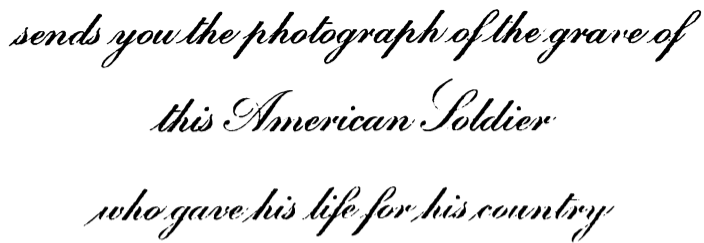 sends you the photograph of the grave of
this American Soldier
who gave his life for his country